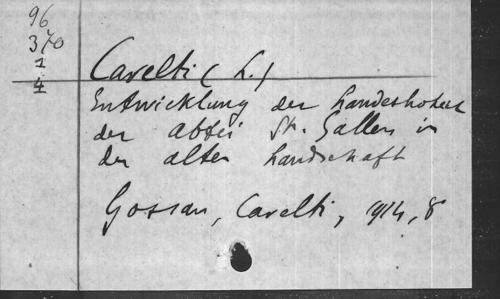 96
370
1
4
Cavelti (L.)
Entwicklung der Landeshoheit
der Abtei St. Gallen in
der alten Landschaft
Gossau, Cavelti, 1914, 8